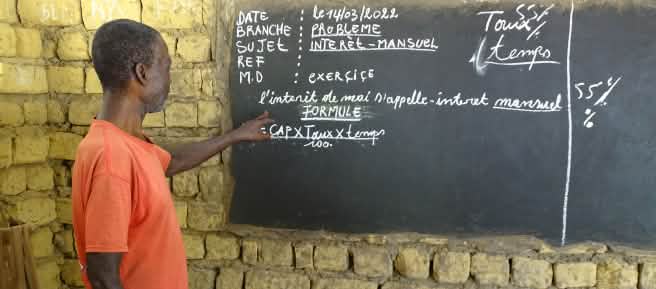 DATE : le 14/03/2022
BRANCHE : PROBLEME
SUJET : INTERÊT-MANSUEL
REF :
M.D : exercice
l'interit de mai s'appelle-interet mansuel
FORMULE
= CAP X Taux X temps
100.
Taux
temps
55%
%